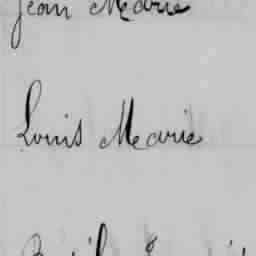 Jean Marie
Louis Marie